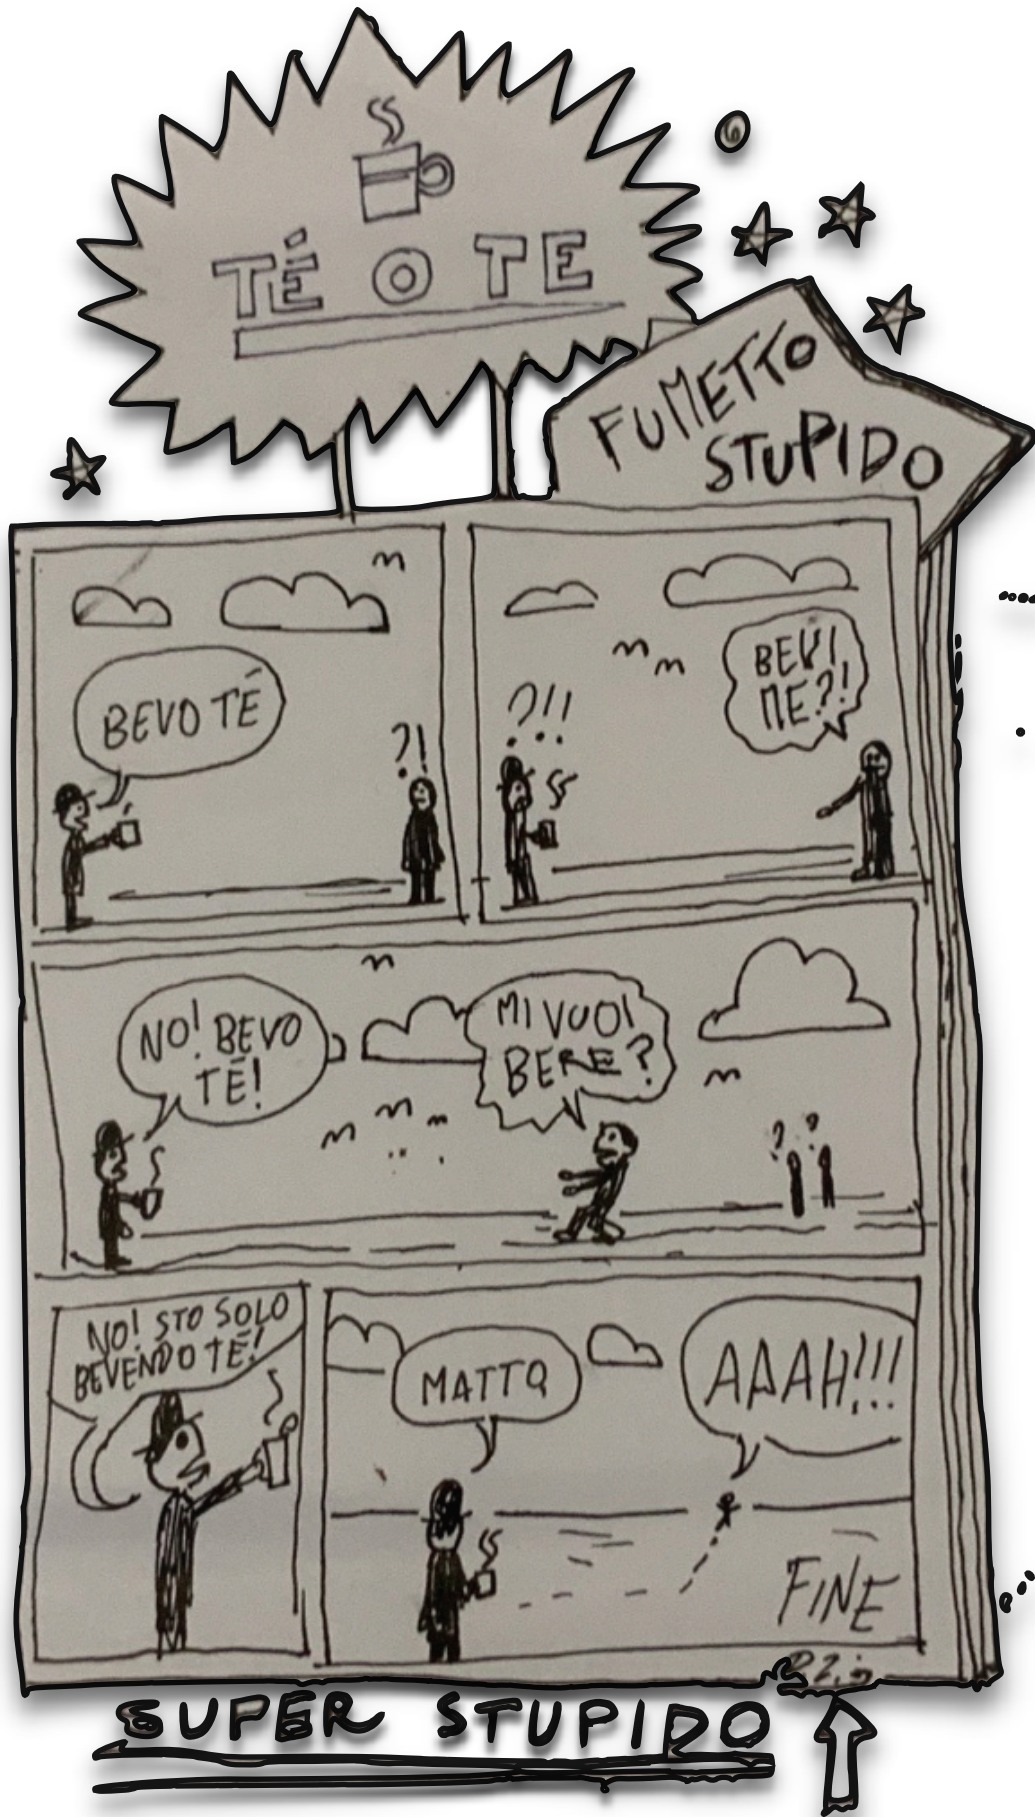 TÉ O TE
FUMETTO
STUPIDO
BEVO TÉ
?!
?!!
BEVI
ME?!
NO! BEVO
TÉ!
MI VUOI
BERE?
? ?
NO! STO SOLO
BEVENDO TÉ!
MATTO
AAAH!!!
FINE
SUPER STUPIDO